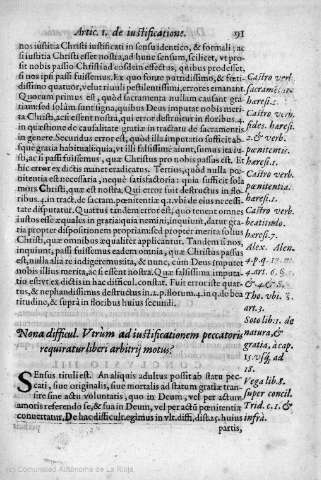 Artic. 1. de iustificatione.
91
nos iustitia Christi iustificati in sensu identico, & formali; ac
si iustitia Christi esset nostra, ad hunc sensum, scilicet, vt pro-
sit nobis passio Christi ad eosdem effectus, quibus prodesset,
si nos ipsi passi fuissemus. Ex quo fonte putridissimo, & fœti-
dissimo quatuor, velut riuuli pestilentissimi, errores emanant.
Quorum primus est, quòd sacramenta nullam causant gra-
tiam: sed solùm sanctigna, quibus Deus imputet nobis meri-
ta Christi, acsi essent nostra, qui error destruitur in floribus. 4.
in quæstione de causalitate gratiæ in tractatu de sacramentis
in genere. Secundus error est, quòd illa imputatio sufficit abs-
que gratia habituali, quia, vt illi falsissime aiunt, sumus ita iu-
sti, ac si passi fuissemus, quæ Christus pro nobis passus est. Et
hic error ex dictis manet eradicatus. Tertius, quòd nulla pœ-
nitentia est necessaria, neque satisfactoria: quia sufficit sola
mors Christi, quæ est nostra. Qui error fuit destructus in flo-
ribus. 4. in tract. de sactam. pœnitentiæ q. 2. vbi de eius necessi-
tate disputatur. Quartus tandem error est; quo tenent omnes
iustos esse æquales in gratia; quia nemini, inquiunt, datur gra-
tia propter dispositionem propriam: sed propter merita solius
Christi, quæ omnibus æqualiter applicantur. Tandem si nos,
inquiunt, passi fuissemus eadem omnia, quæ Christus passus
est, nulla alia re indigeremus, & nunc, cùm Deus imputet
nobis illius merita, ac si essent nostra. Quæ falsissima imputa-
tio est vt ex dictis in hac difficul. constat. Fuit error iste quar-
tus, & nephandissimus destructus in 2. p. florum. 4. in q. de bea
titudine, & suprà in floribus huius secundi.
Castro verb.
sacramē. 1.
hæres. 1.
Castro verb.
fides. hæres.
2. & verb.
pœnitentia.
Castro verb.
pœnitentia.
hæres. 1.
Castro verb.
beatitudo.
hæres. 7.
Alex. Alen.
4. p. q. 17. m.
4. art. 6. §. 3.
& 4. & 8.
Tho. vbi. §.
art. 3.
Soto lib. 2. de
natura, &
gratia, à cap.
15. vsq; ad
18.
Vega lib. 8.
super concil.
Trid. c. 1. &
infrà.
Nona difficul. Vtrùm ad iustificationem peccatoris
requiratur liberi arbitrij motus?
SEnsus tituli est. An aliquis adultus possit ab statu pec-
cati, siue originalis, siue mortalis ad statum gratiæ tran-
sire sine actu voluntatis, quo in Deum, vel per actum
amoris referendo se, & sua in Deum, vel per actū pœnitentiæ
conuertatur. De hac difficult. egimus in vlt. diffi. dist. 25. huius
partis,
(c) Comunidad Autónoma de La Rioja